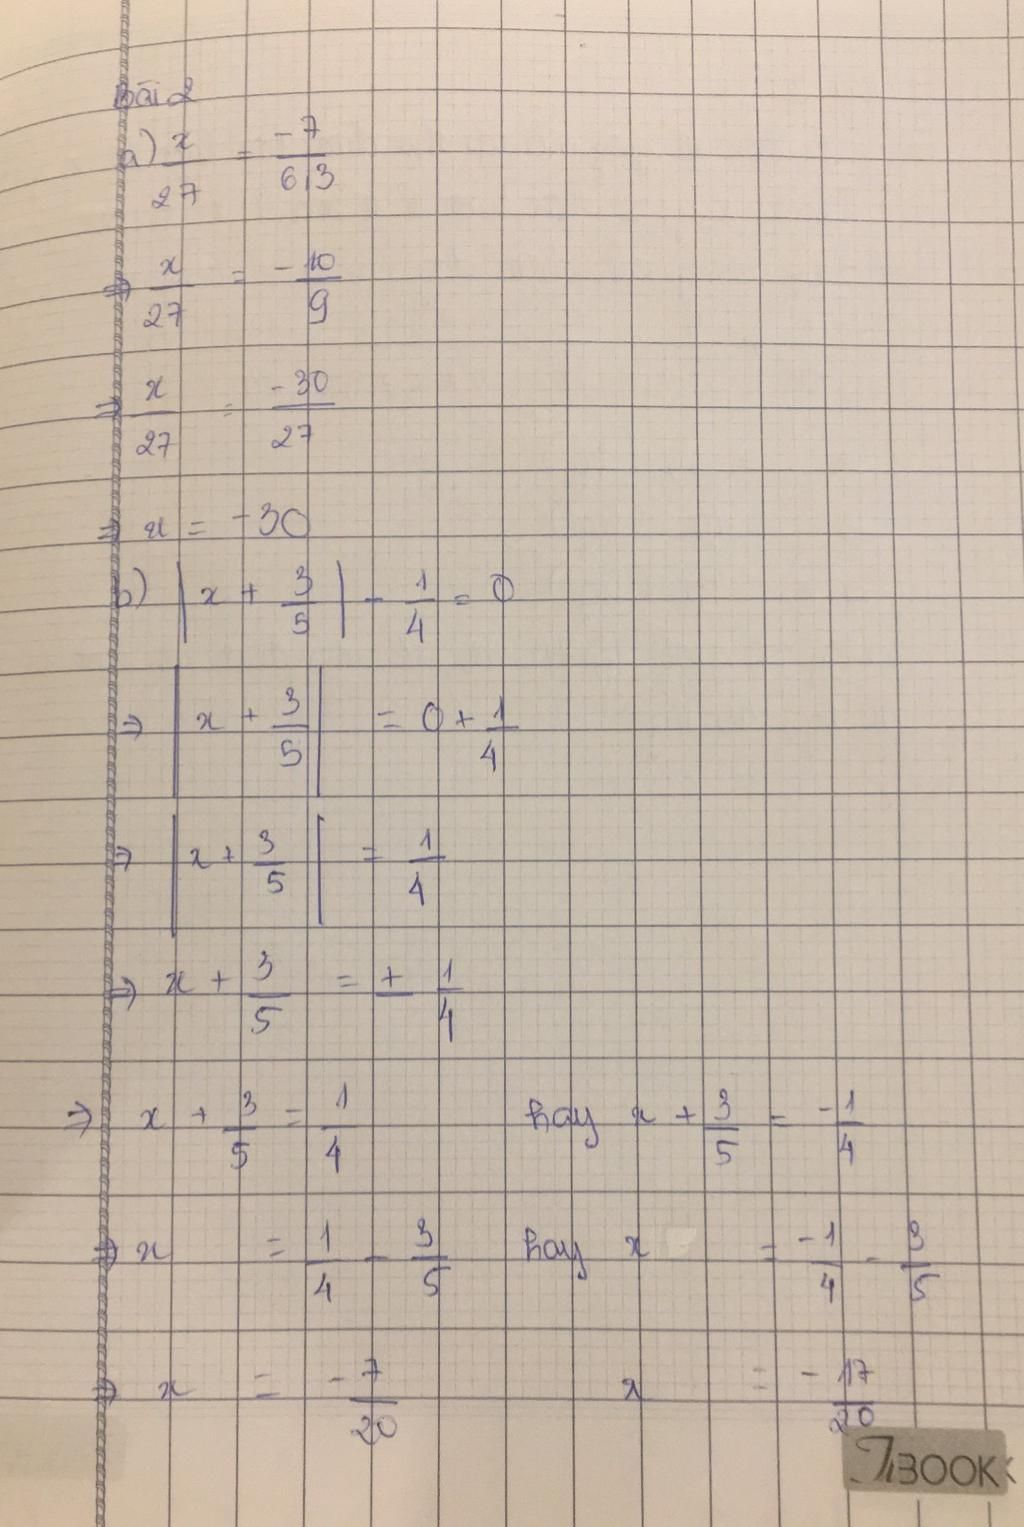 Bài 2
a) x/27 = -7/6,3
⇒ x/27 = -10/9
⇒ x/27 = -30/27
⇒ x = -30
b) |x + 3/5| - 1/4 = 0
⇒ |x + 3/5| = 0 + 1/4
⇒ |x + 3/5| = 1/4
⇒ x + 3/5 = ± 1/4
⇒ x + 3/5 = 1/4 hay x + 3/5 = -1/4
⇒ x = 1/4 - 3/5 hay x = -1/4 - 3/5
⇒ x = -7/20 x = -17/20
TiBOOK